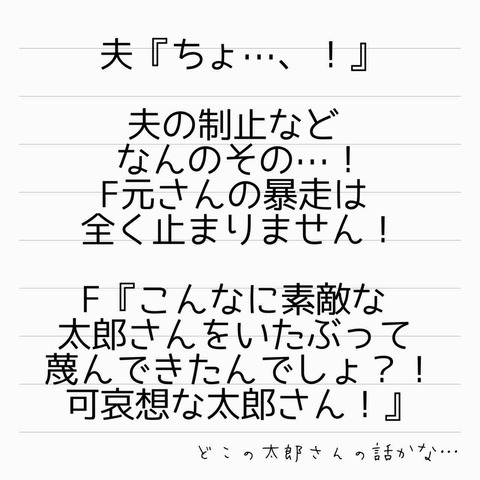 夫『ちょ…、！』
夫の制止など
なんのその…！
F元さんの暴走は
全く止まりません！
F『こんなに素敵な
太郎さんをいたぶって
蔑んできたんでしょ？！
可哀想な太郎さん！』
どこの太郎さんの話かな…